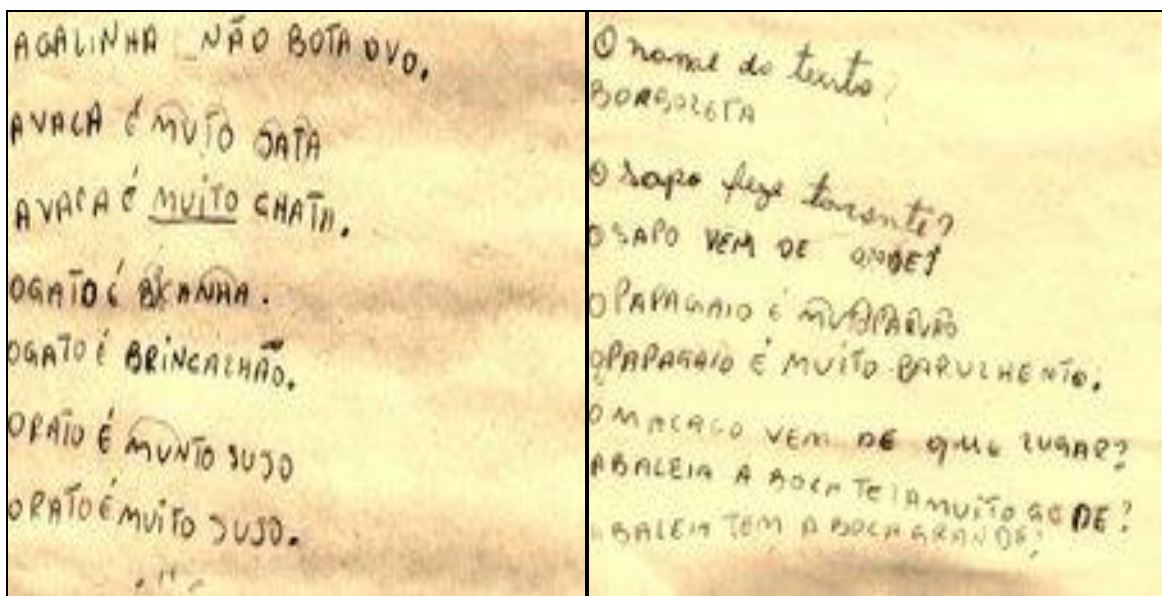 AGALINHA NÃO BOTA OVO.
AVACA É MUTO JATA
AVACA É MUITO CHATA.
OGATO É BRINCALHÃO.
ORATO É MUNTO SUJO
ORATO É MUITO SUJO.
O nome do texto?
BORBOLETA
O sapo
OSAPO VEM DE ONDE?
OPAPAGAIO É
OPAPAGAIO É MUITO BARULHENTO.
OMACACO VEM DE QUE LUGAR?
ABALEIA A BOCA MUITO DE?
ABALEIA TEM A BOCA GRANDE?